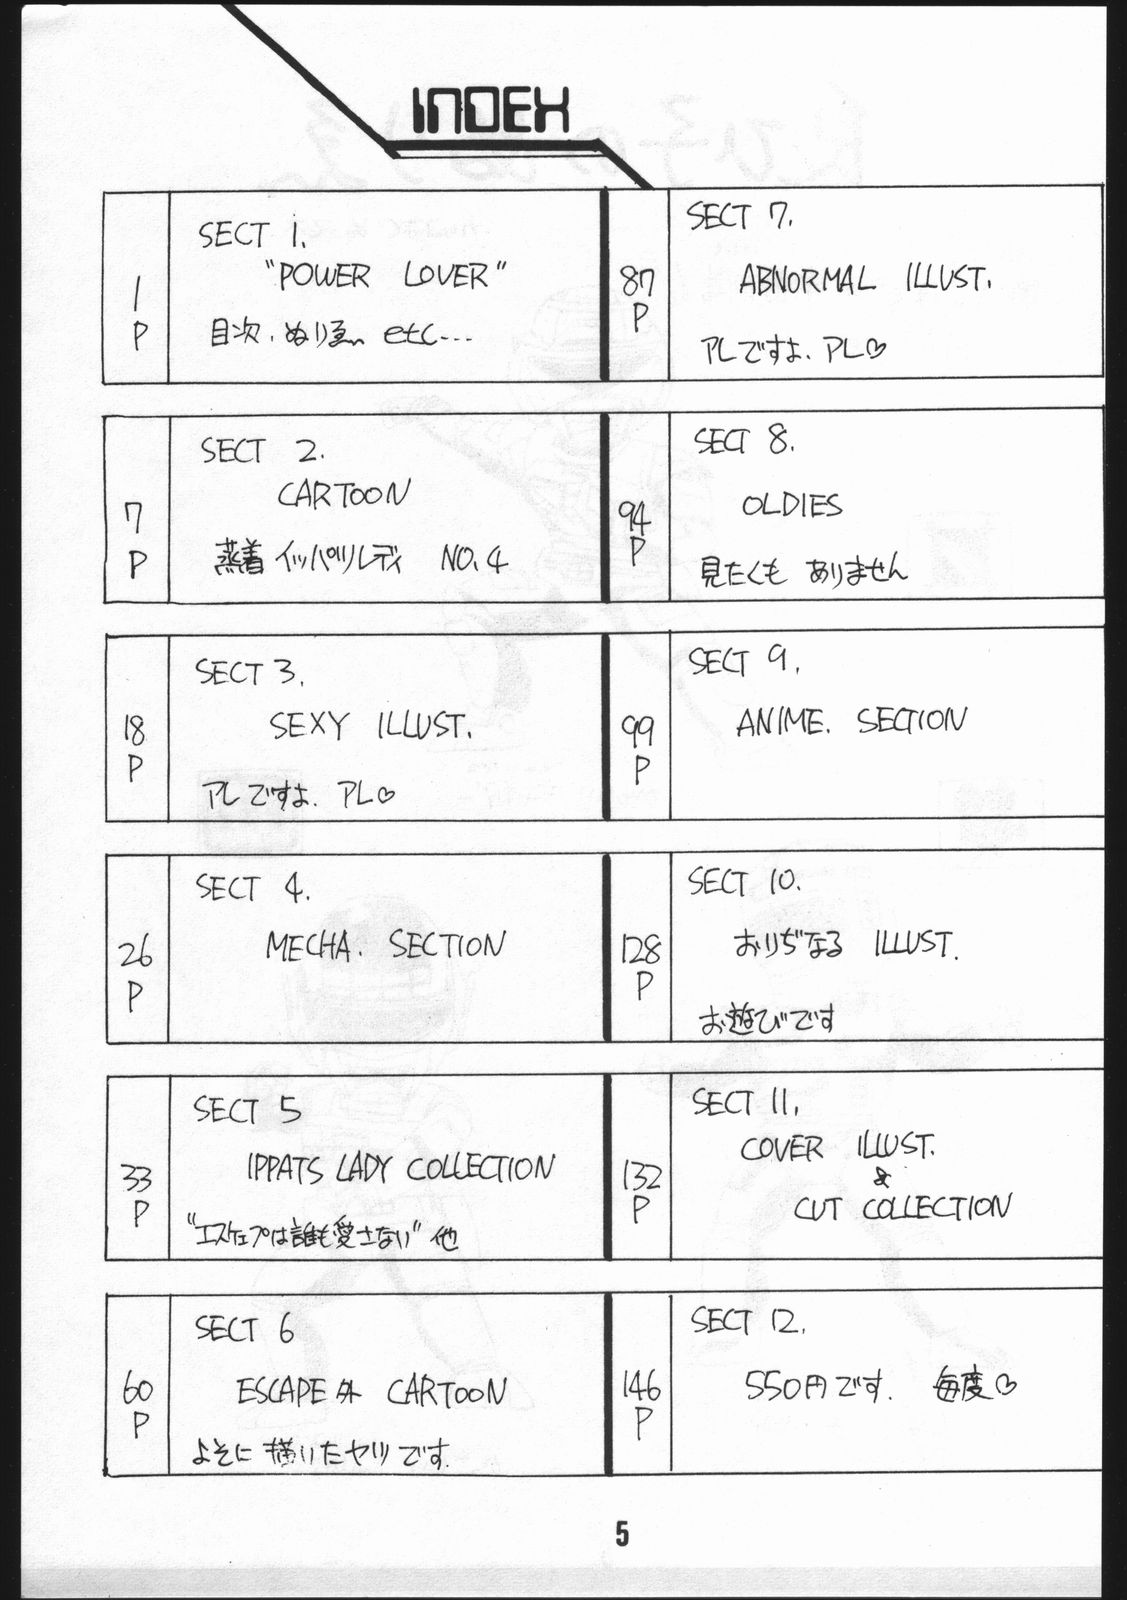 INDEX
1P
SECT 1.
"POWER LOVER"
目次、ぬりゑ、etc...
7P
SECT 2.
CARTOON
蒸着イッパツレディ NO.4
18P
SECT 3.
SEXY ILLUST.
アレですよ、アレ♡
26P
SECT 4.
MECHA. SECTION
33P
SECT 5
IPPATS LADY COLLECTION
"エスケェプは誰も愛さない"他
60P
SECT 6
ESCAPE外 CARTOON
よそに描いたヤツです.
87P
SECT 7.
ABNORMAL ILLUST.
アレですよ、アレ♡
94P
SECT 8.
OLDIES
見たくもありません
99P
SECT 9.
ANIME. SECTION
128P
SECT 10.
おりぢなる ILLUST.
お遊びです
132P
SECT 11.
COVER ILLUST.
&
CUT COLLECTION
146P
SECT 12.
550円です. 毎度♡
5